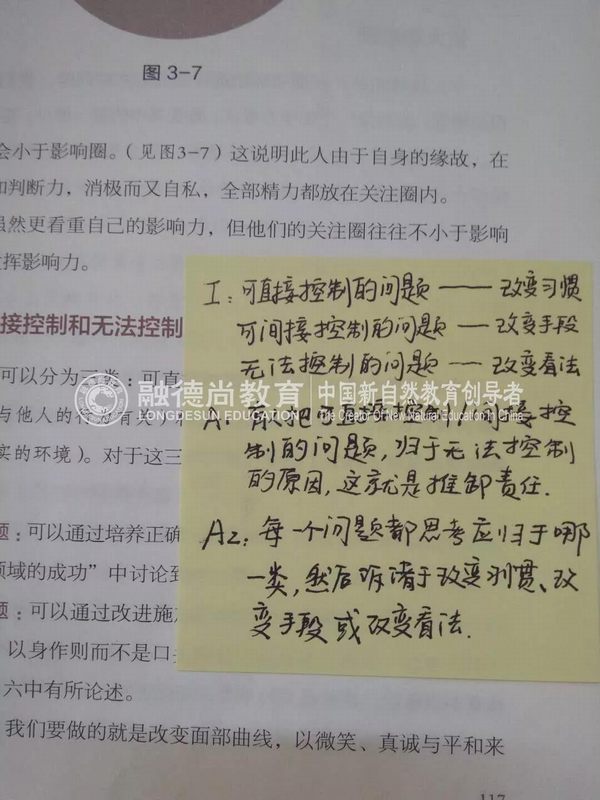 图 3-7
会小于影响圈。(见图3-7)这说明此人由于自身的缘故，在
和判断力，消极而又自私，全部精力都放在关注圈内。
虽然更看重自己的影响力，但他们的关注圈往往不小于影响
发挥影响力。
I：可直接控制的问题——改变习惯
接控制和无法控制
可间接控制的问题——改变手段
无法控制的问题——改变看法
可以分为三类：可直
融德尚教育 中国新自然教育创导者
LONGDESUN EDUCATION The Creator Of New Natural Education In China
与他人的行为有关
A1：一般把可直接控制、间接控
制的问题，归于无法控制
实的环境)。对于这三
的原因，这就是推卸责任.
题：可以通过培养正确
A2：每一个问题都思考应归于哪
领域的成功”中讨论到
一类，然后诉诸于改变习惯、改
题：可以通过改进施
变手段或改变看法.
以身作则而不是口头
六中有所论述。
我们要做的就是改变面部曲线，以微笑、真诚与平和来
117